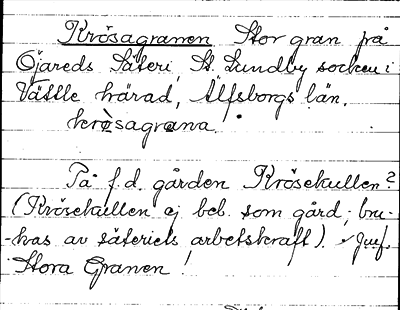 Krösagranen Stor gran på
Öjareds Säteri, St. Lundby socken i
Vättle härad, Älfsborgs län.
krösagrana.
På f.d. gården Krösekullen?
(Krösekullen ej beb. som gård; bru-
-kas av säteriets arbetskraft). Jmf.
Stora Granen!